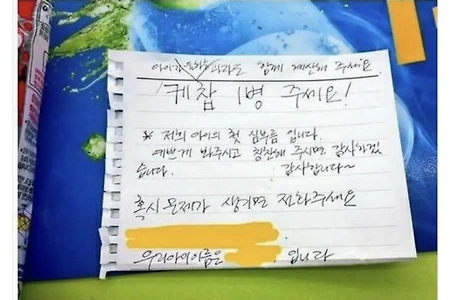 아이가 원하는 과자도 함께 계산해 주세요.
케찹 1병 주세요!
※ 저희 아이의 첫 심부름 입니다.
예쁘게 봐주시고 칭찬해 주시면 감사하겠
습니다. 감사합니다~
혹시 문제가 생기면 전화주세요
우리아이이름은 입니다